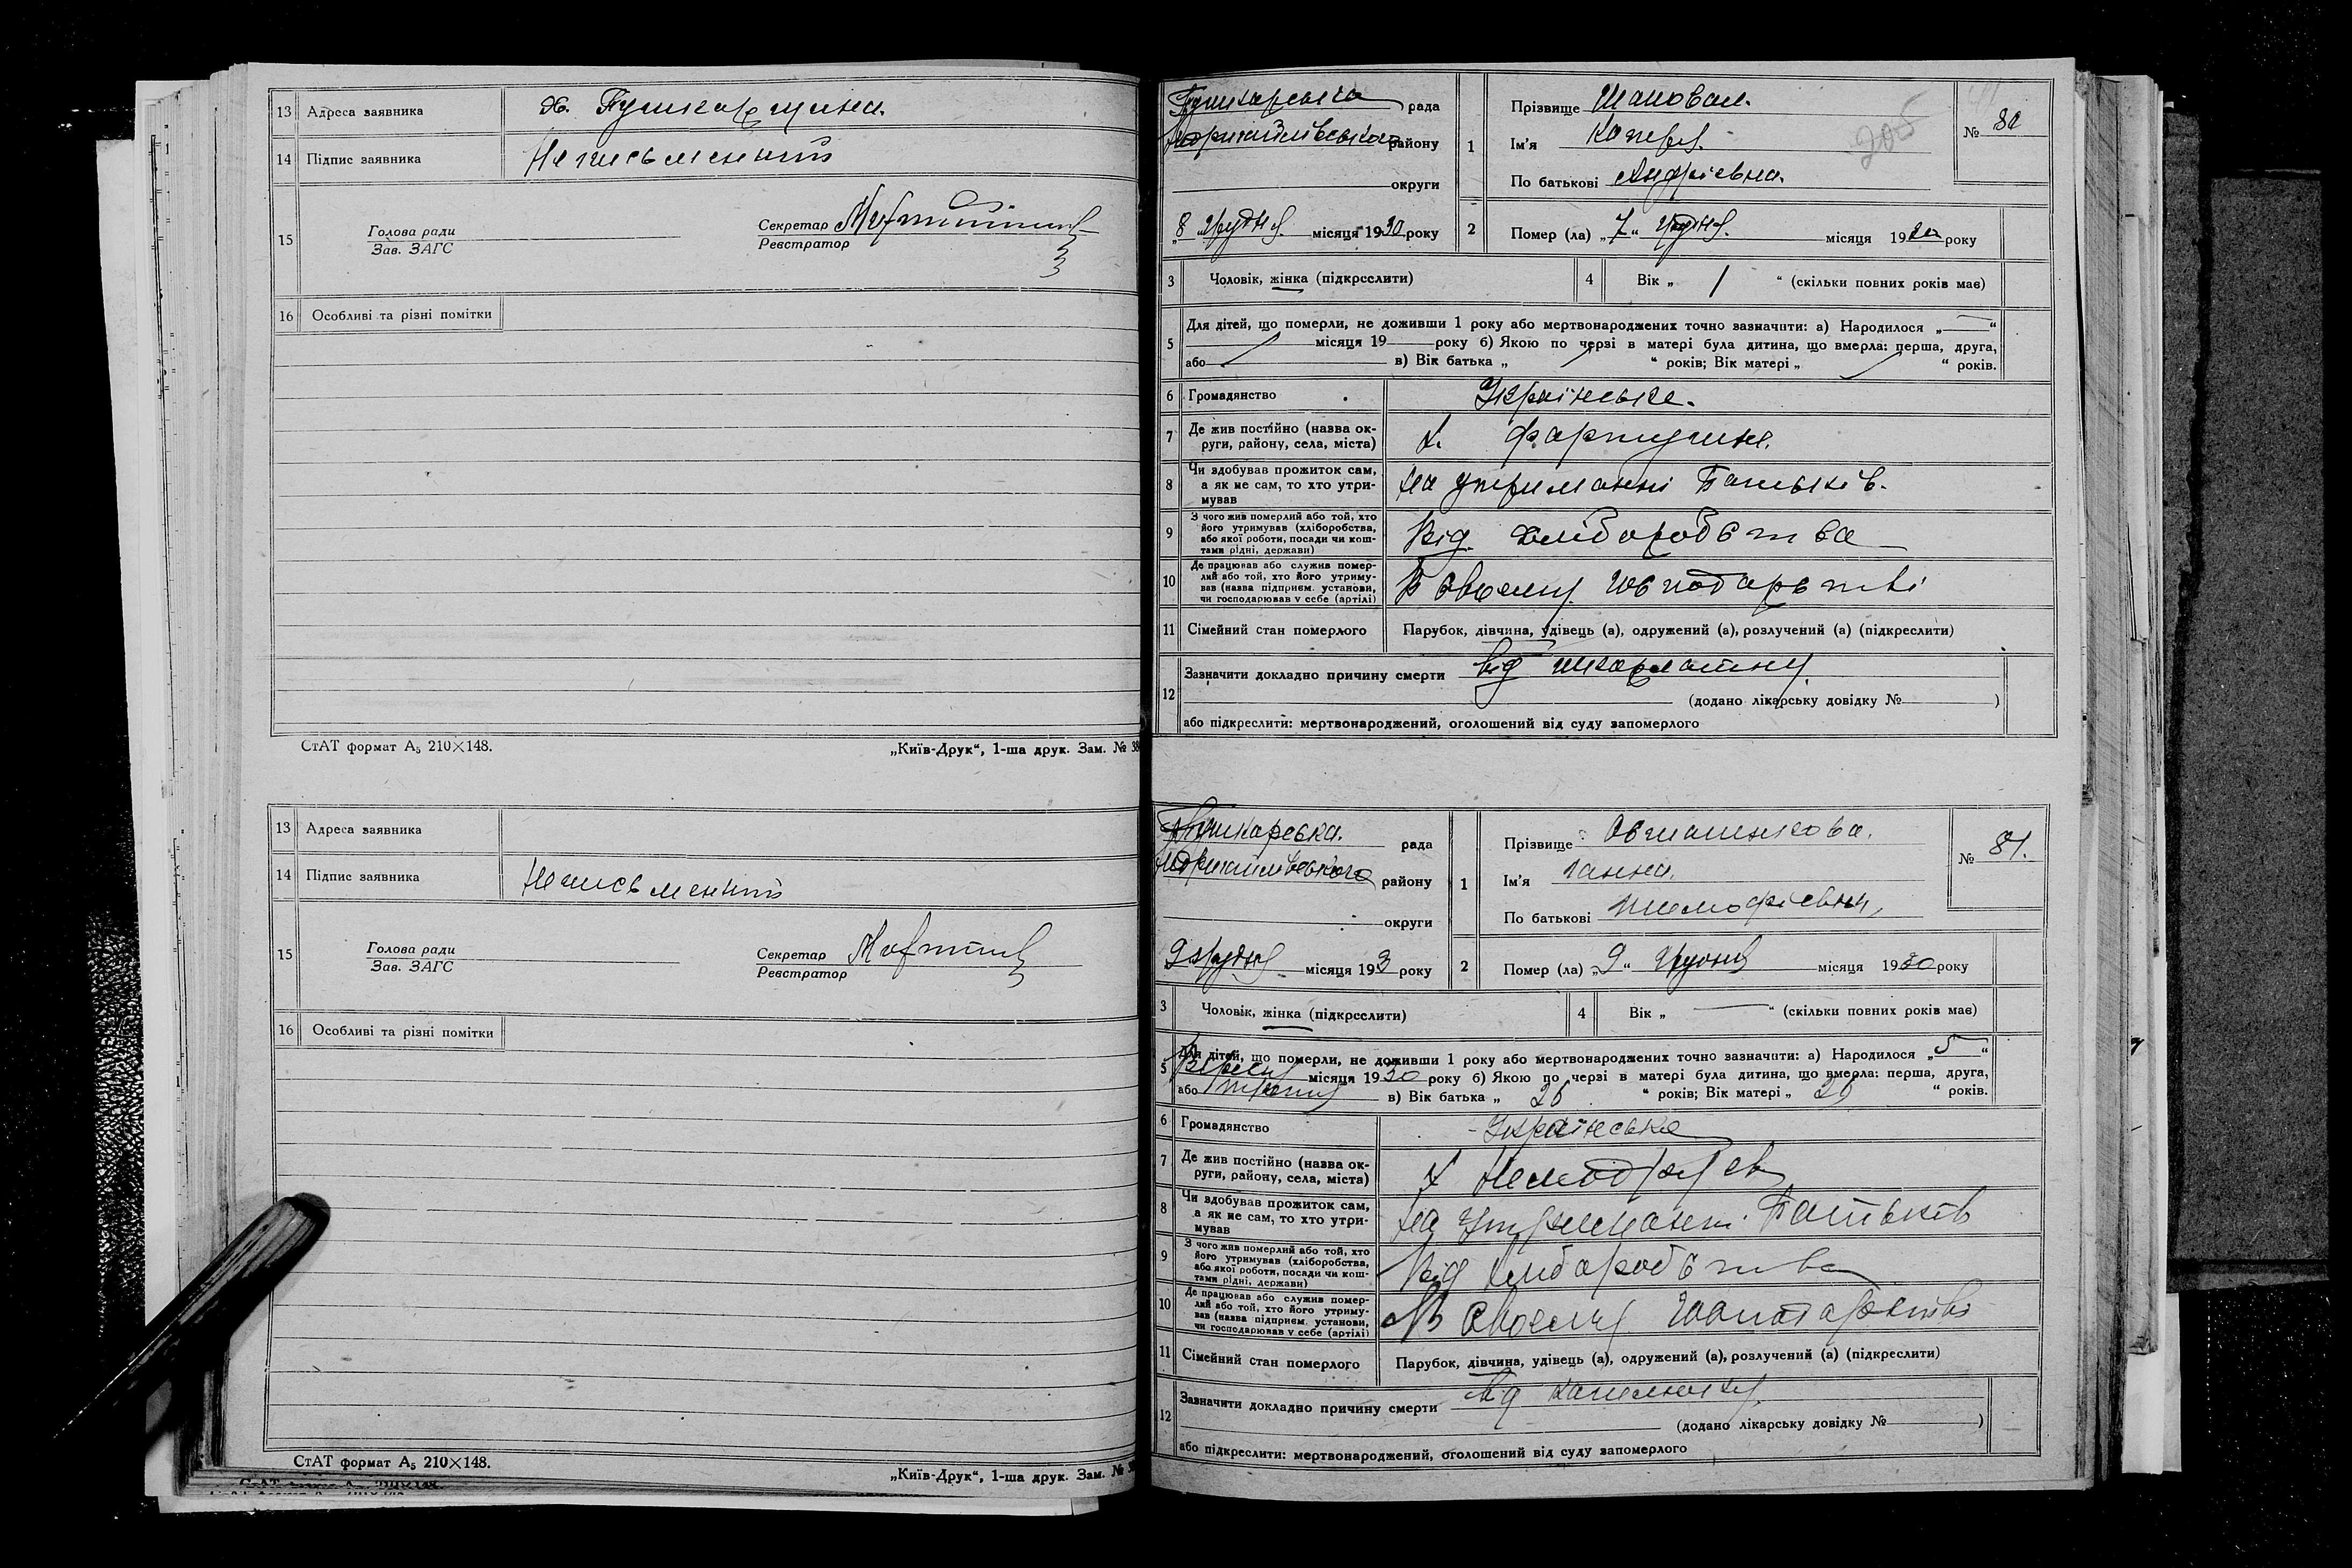 13 Адреса заявника х. Пушкарщина.
14 Підпис заявника Неписьменний
15 Голова ради
Зав. ЗАГС
Секретар
Реєстратор
16 Особливі та різні помітки
СтАТ формат А₅ 210×148. „Київ-Друк“, 1-ша друк. Зам. №
13 Адреса заявника
14 Підпис заявника Неписьменний
15 Голова ради
Зав. ЗАГС
Секретар
Реєстратор
16 Особливі та різні помітки
СтАТ формат А₅ 210×148.
„Київ-Друк“, 1-ша друк. Зам. №
Пушкарська рада
району
округи
„8“ Грудня місяця 1930 року
1 Прізвище Шаповал.
Ім'я
По батькові Андріевна.
205
№ 80
2 Помер (ла) „7“ Грудня місяця 1930 року
3 Чоловік, жінка (підкреслити)
4 Вік „ 1 “ (скільки повних років має)
5 Для дітей, що померли, не доживши 1 року або мертвонароджених точно зазначити: а) Народилося „—“
місяця 19 року б) Якою по черзі в матері була дитина, що вмерла: перша, друга,
або в) Вік батька „ “ років; Вік матері „ “ років.
6 Громадянство Українське.
7 Де жив постійно (назва округи, району, села, міста) х.
8 Чи здобував прожиток сам, а як не сам, то хто утримував на утриманні Батьків.
9 З чого жив померлий або той, хто його утримував (хліборобства, або якої роботи, посади чи коштами рідні, держави) Від хліборобства
10 Де працював або служив померлий або той, хто його утримував (назва підприєм. установи, чи господарював у себе (артілі) В своему господарстві
11 Сімейний стан померлого Парубок, дівчина, удівець (а), одружений (а), розлучений (а) (підкреслити)
12 Зазначити докладно причину смерти від шкарлатини
(додано лікарську довідку № )
або підкреслити: мертвонароджений, оголошений від суду запомерлого
Пушкарська. рада
району
округи
9 грудня місяця 193 року
1 Прізвище
Ім'я Ганна.
По батькові
№ 81.
2 Помер (ла) „9“ Грудня місяця 1930 року
3 Чоловік, жінка (підкреслити)
4 Вік „ — “ (скільки повних років має)
5 Для дітей, що померли, не доживши 1 року або мертвонароджених точно зазначити: а) Народилося „5“
Вересня місяця 1930 року б) Якою по черзі в матері була дитина, що вмерла: перша, друга,
або третя в) Вік батька „ 26 “ років; Вік матері „ “ років.
6 Громадянство Українське
7 Де жив постійно (назва округи, району, села, міста) х
8 Чи здобував прожиток сам, а як не сам, то хто утримував на утриманні Батьків
9 З чого жив померлий або той, хто його утримував (хліборобства, або якої роботи, посади чи коштами рідні, держави) Від хліборобства
10 Де працював або служив померлий або той, хто його утримував (назва підприєм. установи, чи господарював у себе (артілі) В своему господарстві
11 Сімейний стан померлого Парубок, дівчина, удівець (а), одружений (а), розлучений (а) (підкреслити)
12 Зазначити докладно причину смерти від
(додано лікарську довідку № )
або підкреслити: мертвонароджений, оголошений від суду запомерлого